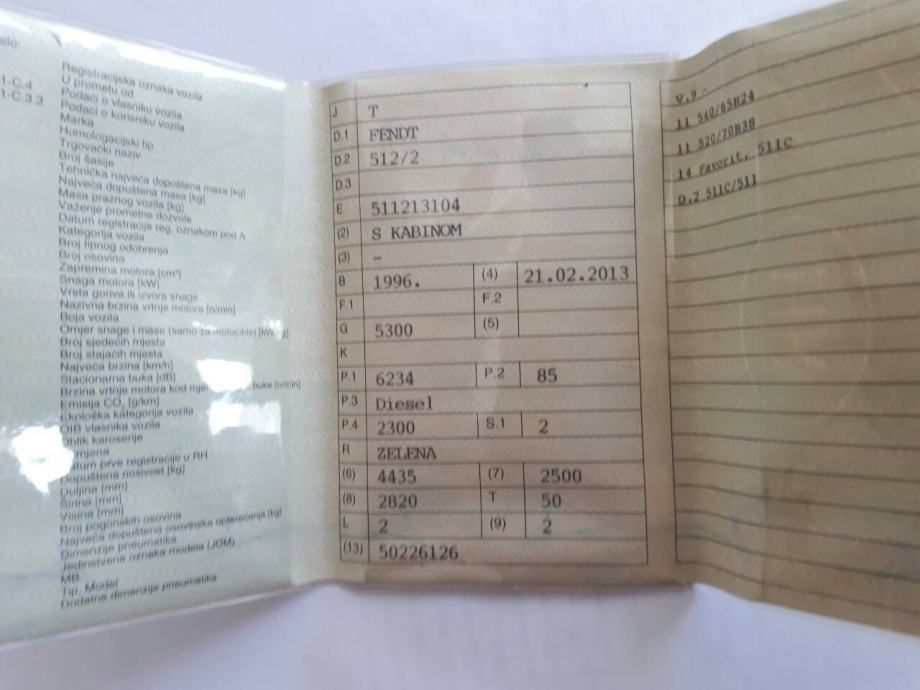 alo:
1-C.4
1-C.3.3
Registracijska oznaka vozila
U prometu od
Podaci o vlasniku vozila
Podaci o korisniku vozila
Marka
Homologacijski tip
Trgovački naziv
Broj šasije
Tehnička najveća dopuštena masa [kg]
Najveća dopuštena masa [kg]
Masa praznog vozila [kg]
Važenje prometne dozvole
Datum registracije reg. oznakom pod A
Kategorija vozila
Broj tipnog odobrenja
Broj osovina
Zapremina motora [cm³]
Snaga motora [kW]
Vrsta goriva ili izvora snage
Nazivna brzina vrtnje motora [o/min]
Boja vozila
Omjer snage i mase (samo za motocikle) [kW/kg]
Broj sjedećih mjesta
Broj stajaćih mjesta
Najveća brzina [km/h]
Stacionarna buka [dB]
Brzina vrtnje motora kod mje buke [o/min]
Emisija CO₂ [g/km]
Ekološka kategorija vozila
OIB vlasnika vozila
Oblik karoserije
mjena
atum prve registracije u RH
Dopuštena nosivost [kg]
Duljina [mm]
Širina [mm]
Visina [mm]
Broj pogonskih osovina
Najveća dopuštena osovinska opterećenja [kg]
Dimenzije pneumatika
Jedinstvena oznaka modela (JOM)
MB
Tip, Model
Dodatne dimenzije pneumatika
J T
D.1 FENDT
D.2 512/2
D.3
E 511213104
(2) S KABINOM
(3) –
B 1996. (4) 21.02.2013
F.1 F.2
G 5300 (5)
K
P.1 6234 P.2 85
P.3 Diesel
P.4 2300 S.1 2
R ZELENA
(6) 4435 (7) 2500
(8) 2820 T 50
L 2 (9) 2
(13) 50226126
V.9 -
11 540/65R24
11 520/70R38
14 Favorit, 511C
D.2 511C/511